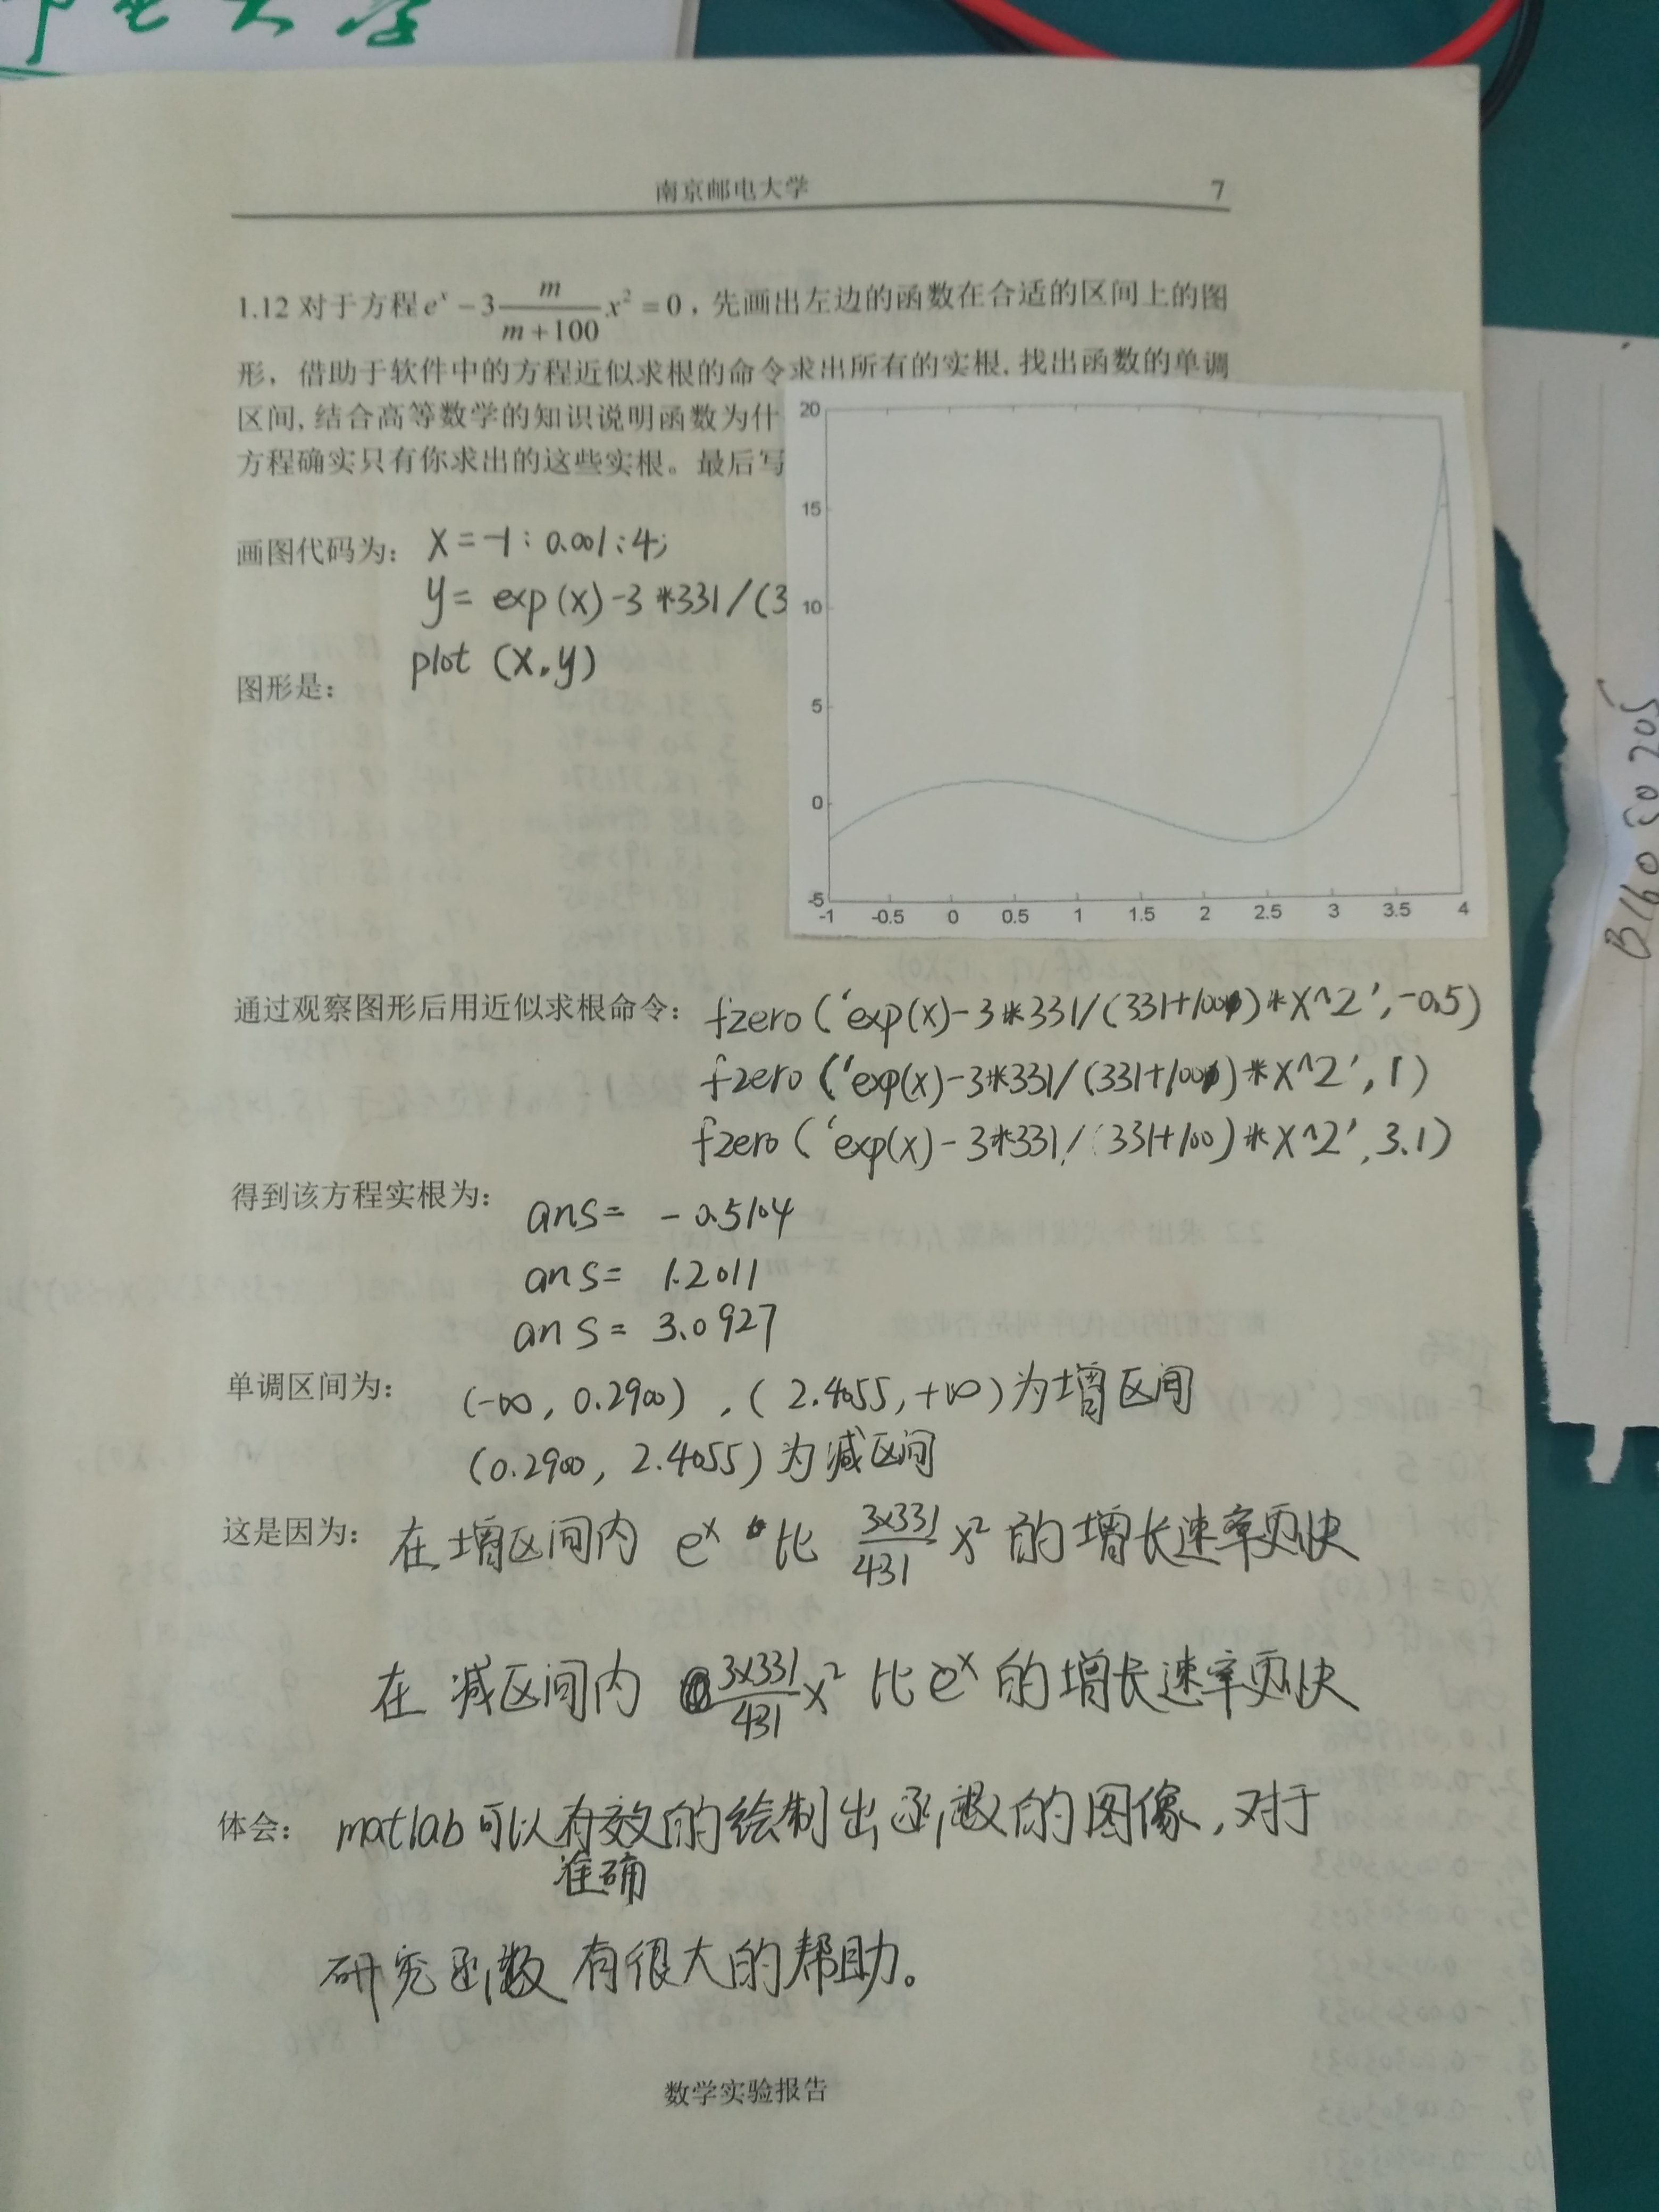 电大学
南京邮电大学 7
1.12 对于方程 e^x − 3 m/(m+100) x² = 0，先画出左边的函数在合适的区间上的图
形，借助于软件中的方程近似求根的命令求出所有的实根,找出函数的单调
区间,结合高等数学的知识说明函数为什
方程确实只有你求出的这些实根。最后写
画图代码为： x=-1:0.001:4;
y= exp(x)-3*331/(3
plot (x,y)
图形是：
20
15
10
5
0
-5
-1 -0.5 0 0.5 1 1.5 2 2.5 3 3.5 4
通过观察图形后用近似求根命令： fzero('exp(x)-3*331/(331+100)*x^2',-0.5)
fzero('exp(x)-3*331/(331+100)*x^2',1)
fzero('exp(x)-3*331/(331+100)*x^2',3.1)
得到该方程实根为： ans= -0.5104
ans= 1.2011
ans= 3.0927
单调区间为： (-∞, 0.2900) ,( 2.4055,+∞)为增区间
(0.2900, 2.4055)为减区间
这是因为： 在增区间内 e^x 比 3×331/431 x² 的增长速率更快
在减区间内 3×331/431 x² 比 e^x 的增长速率更快
体会： matlab可以有效的绘制出函数的图像,对于
准确
研究函数有很大的帮助。
数学实验报告